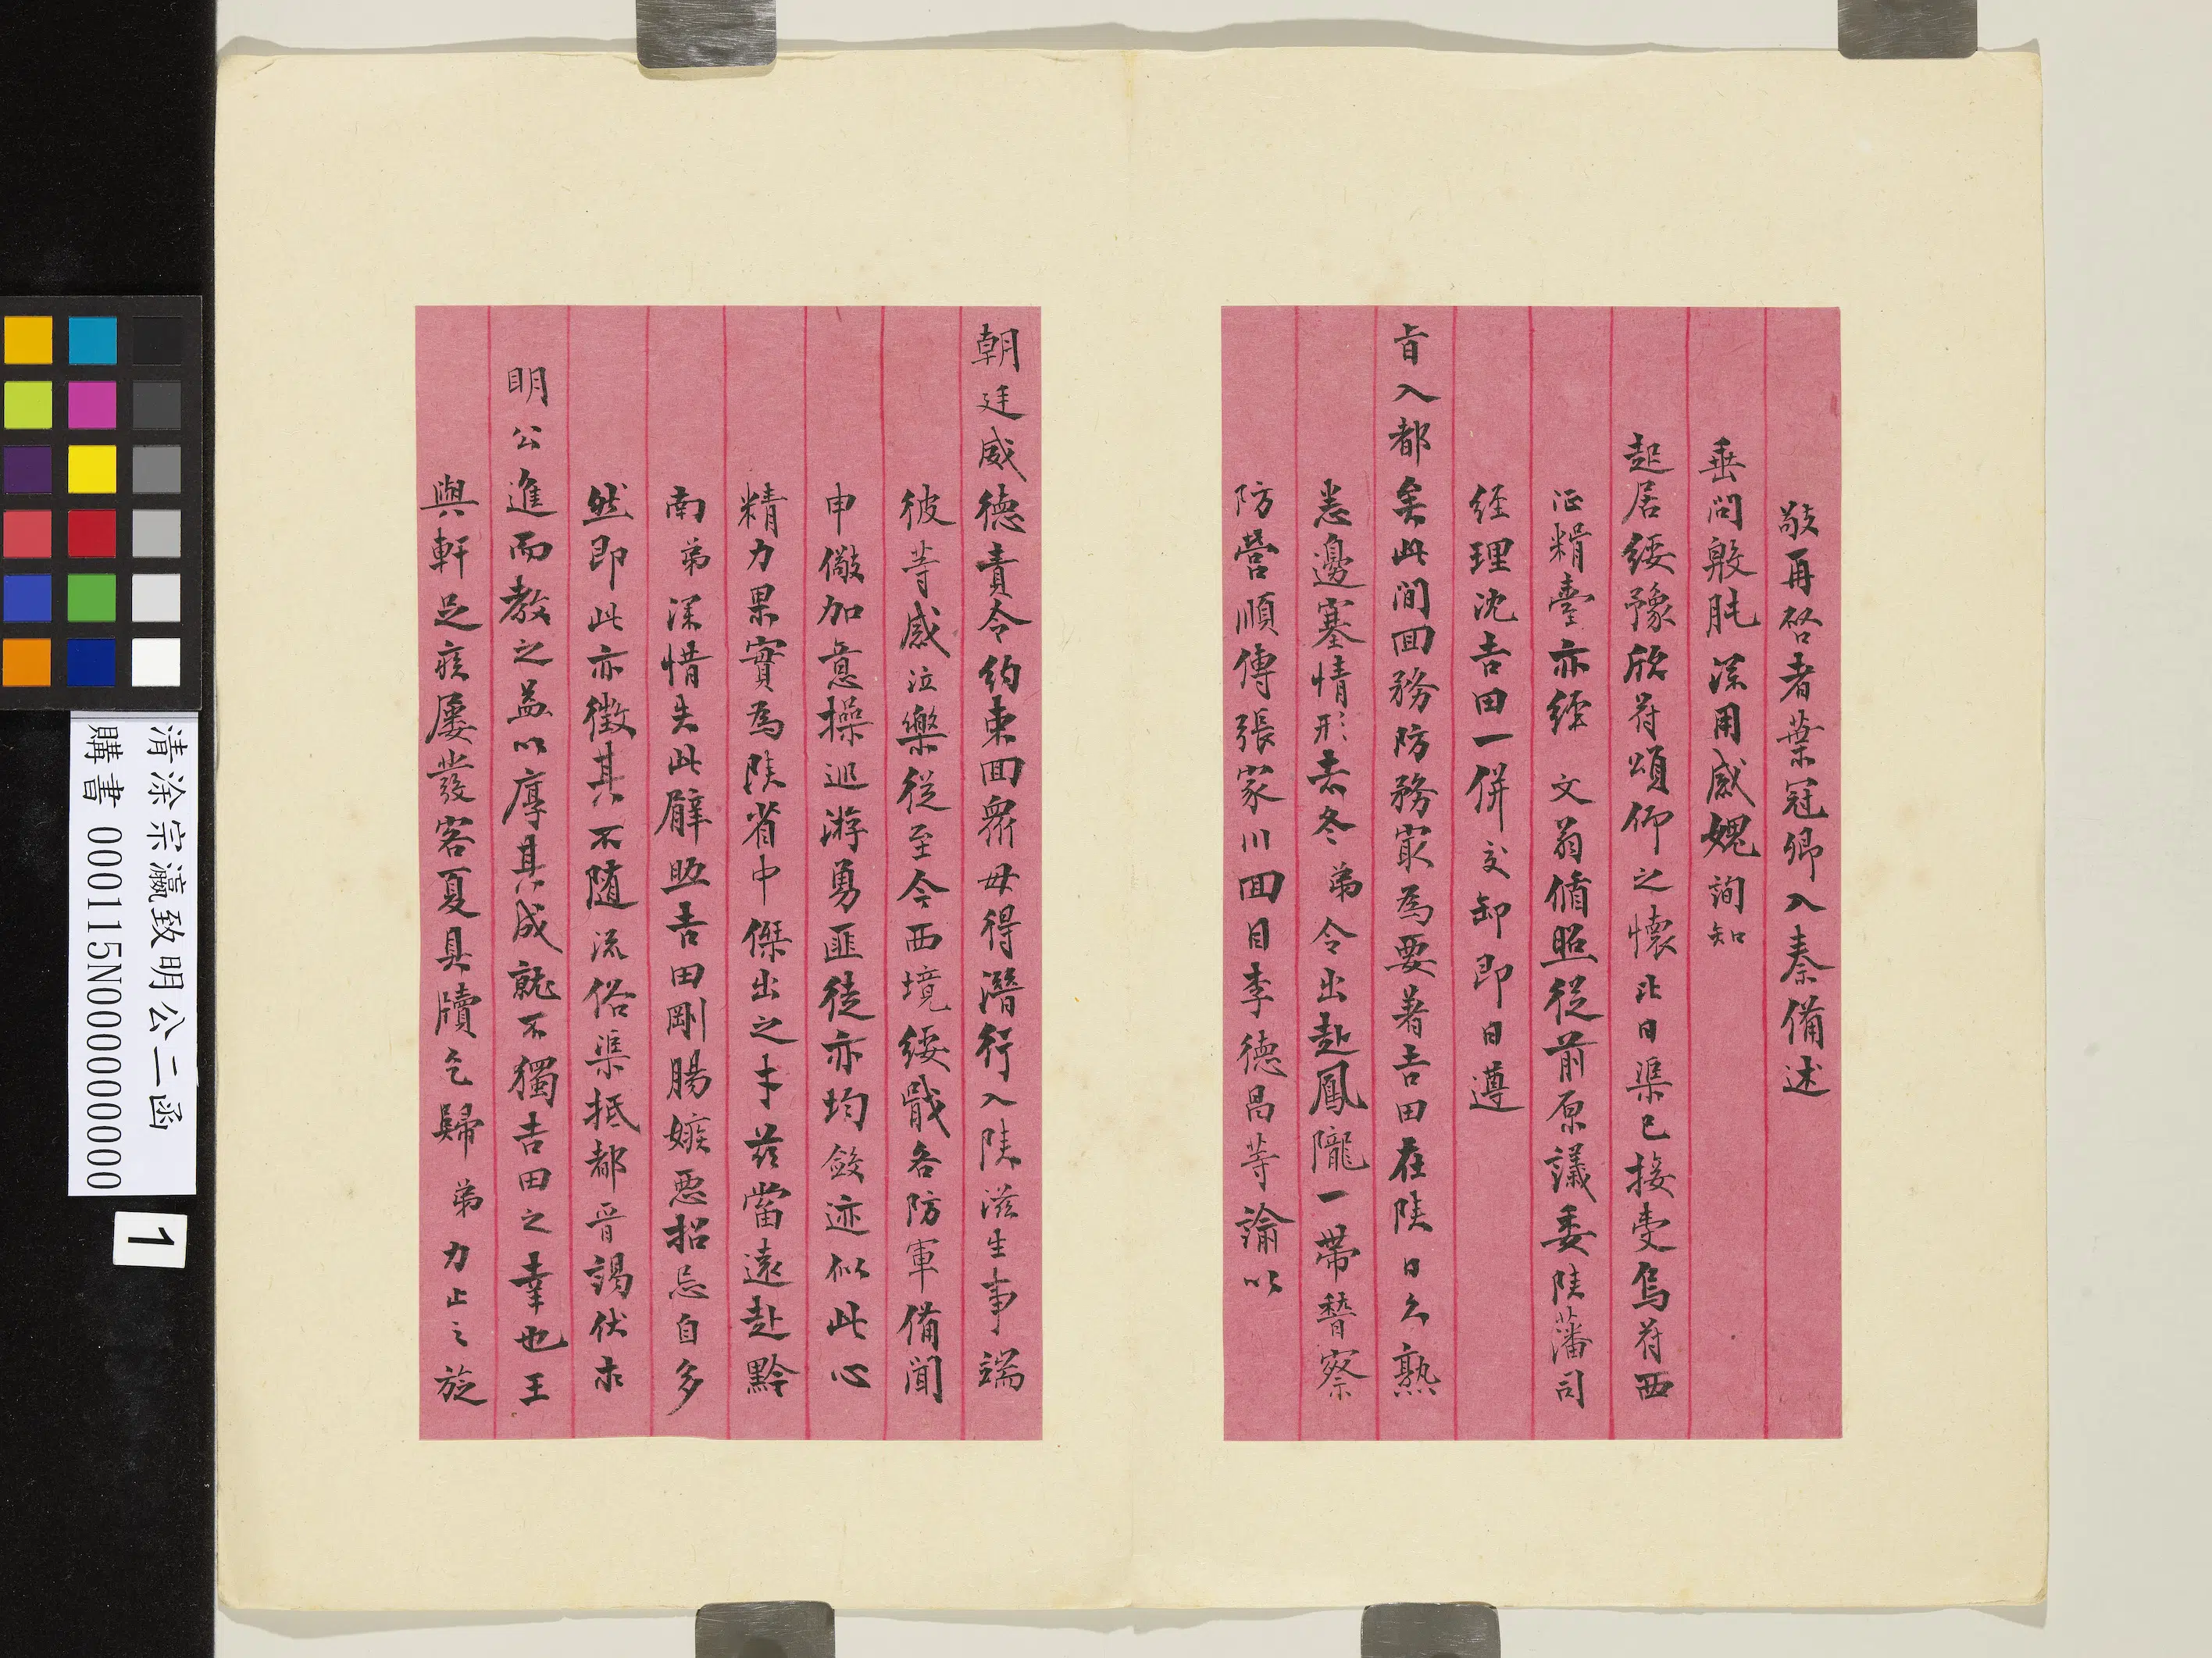 敬再啓者葉冠卿入秦備述
垂問殷肫深用感媿詢知
起居綏豫欣符頌仰之懷比日渠已接受烏符西
征糈臺亦經 文翁循照從前原議委陝藩司
經理沈吉田一併交卸即日遵
旨入都矣此間回務防務寂為要著吉田在陝日久熟
悉邊塞情形去冬弟令出赴鳳隴一帶督察
防營順傳張家川回目李德昌等諭以
朝廷威德責令約束回衆毋得潛行入陝滋生事端
彼等感泣樂從至今西境綏戢各防軍備聞
申儆加意操巡游勇匪徒亦均斂迹似此心
精力果實為陝省中傑出之才茲當遠赴黔
南弟深惜失此臂助吉田剛腸嫉惡招忌自多
然即此亦徵其不隨流俗渠抵都晉謁伏求
明公進而教之益以厚其成就不獨吉田之幸也王
與軒足疾屢發客夏具牘乞歸弟力止之旋
清涂宗瀛致明公二函
購書 000115N000000000
1